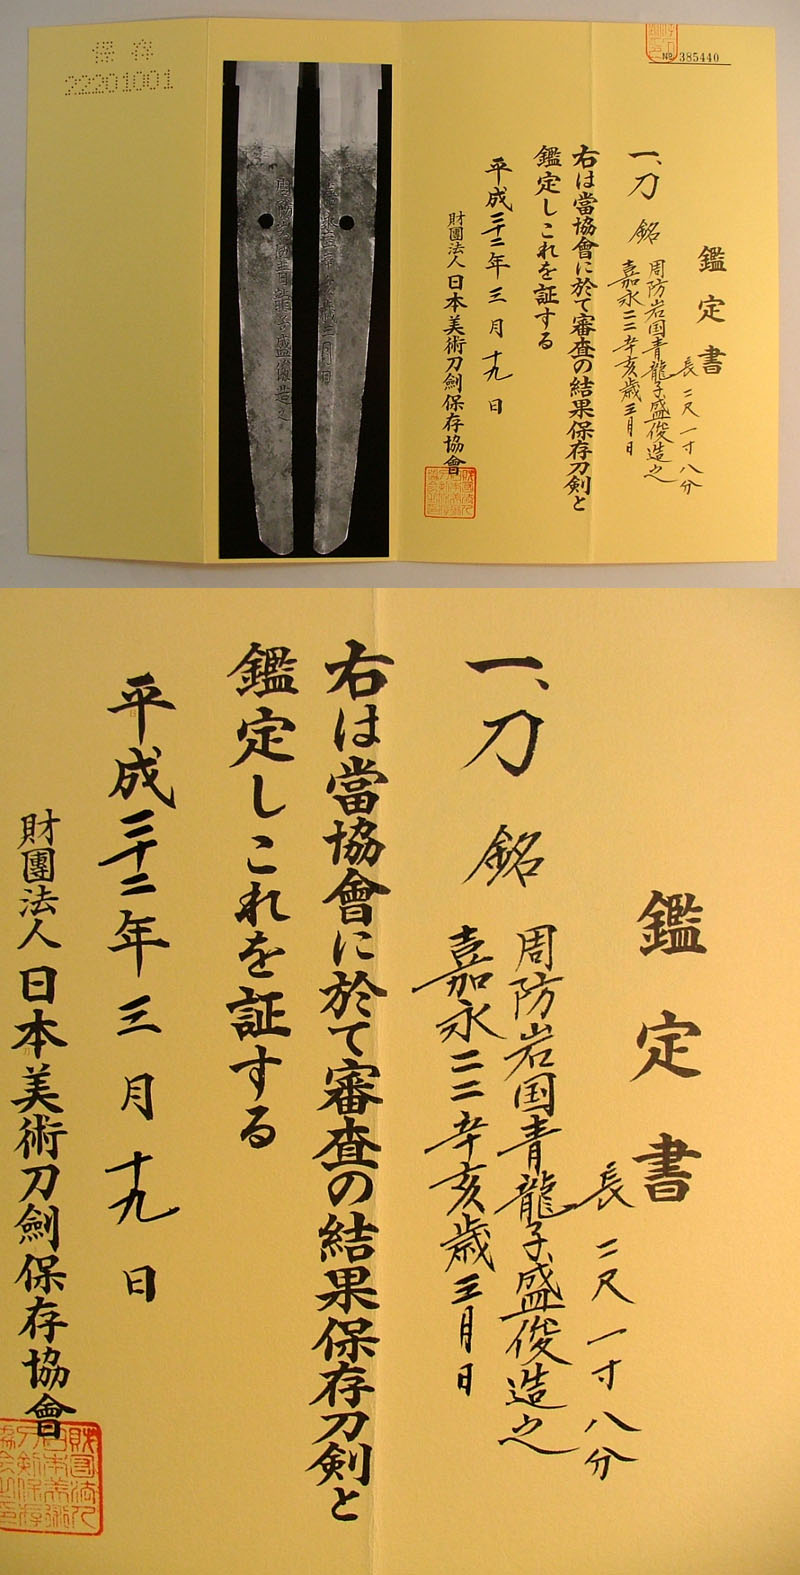 保存
22201001
№ 385440
鑑定書
長二尺一寸八分
一、刀 銘 周防岩国青龍子盛俊造之
嘉永二二辛亥歳三月日
右は當協會に於て審査の結果保存刀剣と
鑑定しこれを証する
平成二十二年三月十九日
財團法人日本美術刀劍保存協會
鑑定書
長二尺一寸八分
一、刀 銘 周防岩国青龍子盛俊造之
嘉永二二辛亥歳三月日
右は當協會に於て審査の結果保存刀剣と
鑑定しこれを証する
平成二十二年三月十九日
財團法人日本美術刀劍保存協會